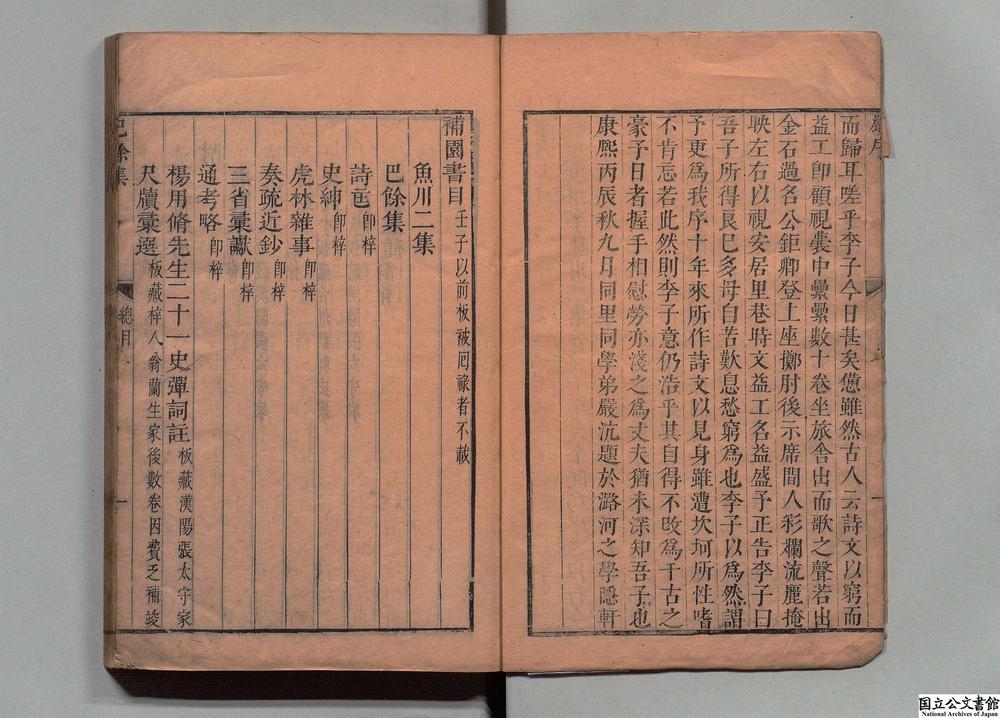 而歸耳嗟乎李子今日甚矣憊雖然古人云詩文以窮而
益工即顧視囊中纍纍數十卷坐旅舍出而歌之聲若出
金石過名公鉅卿登上座擲肘後示席間人彩爛流麗掩
映左右以視安居里巷時文益工名益盛予正告李子曰
吾子所得良已多毋自苦歎息愁窮為也李子以為然謂
予更為我序十年來所作詩文以見身雖遭坎坷所性嗜
不肯忘若此然則李子意仍浩乎其自得不改為千古之
豪予日者握手相慰勞亦淺之為丈夫猶未深知吾子也
康熙丙辰秋九月同里同學弟嚴沆題於潞河之學隱軒
補園書目 壬子以前板被回祿者不載
魚川二集
巴餘集
詩 即梓
史紳 即梓
虎林雜事 即梓
奏疏近鈔 即梓
三省彙讞 即梓
通考略 即梓
楊用脩先生二十一史彈詞註 板藏漢陽張太守家
尺牘彙選 板藏梓人翁蘭生家後數卷因費乏補竣
巴餘集 總目 一
国立公文書館
National Archives of Japan